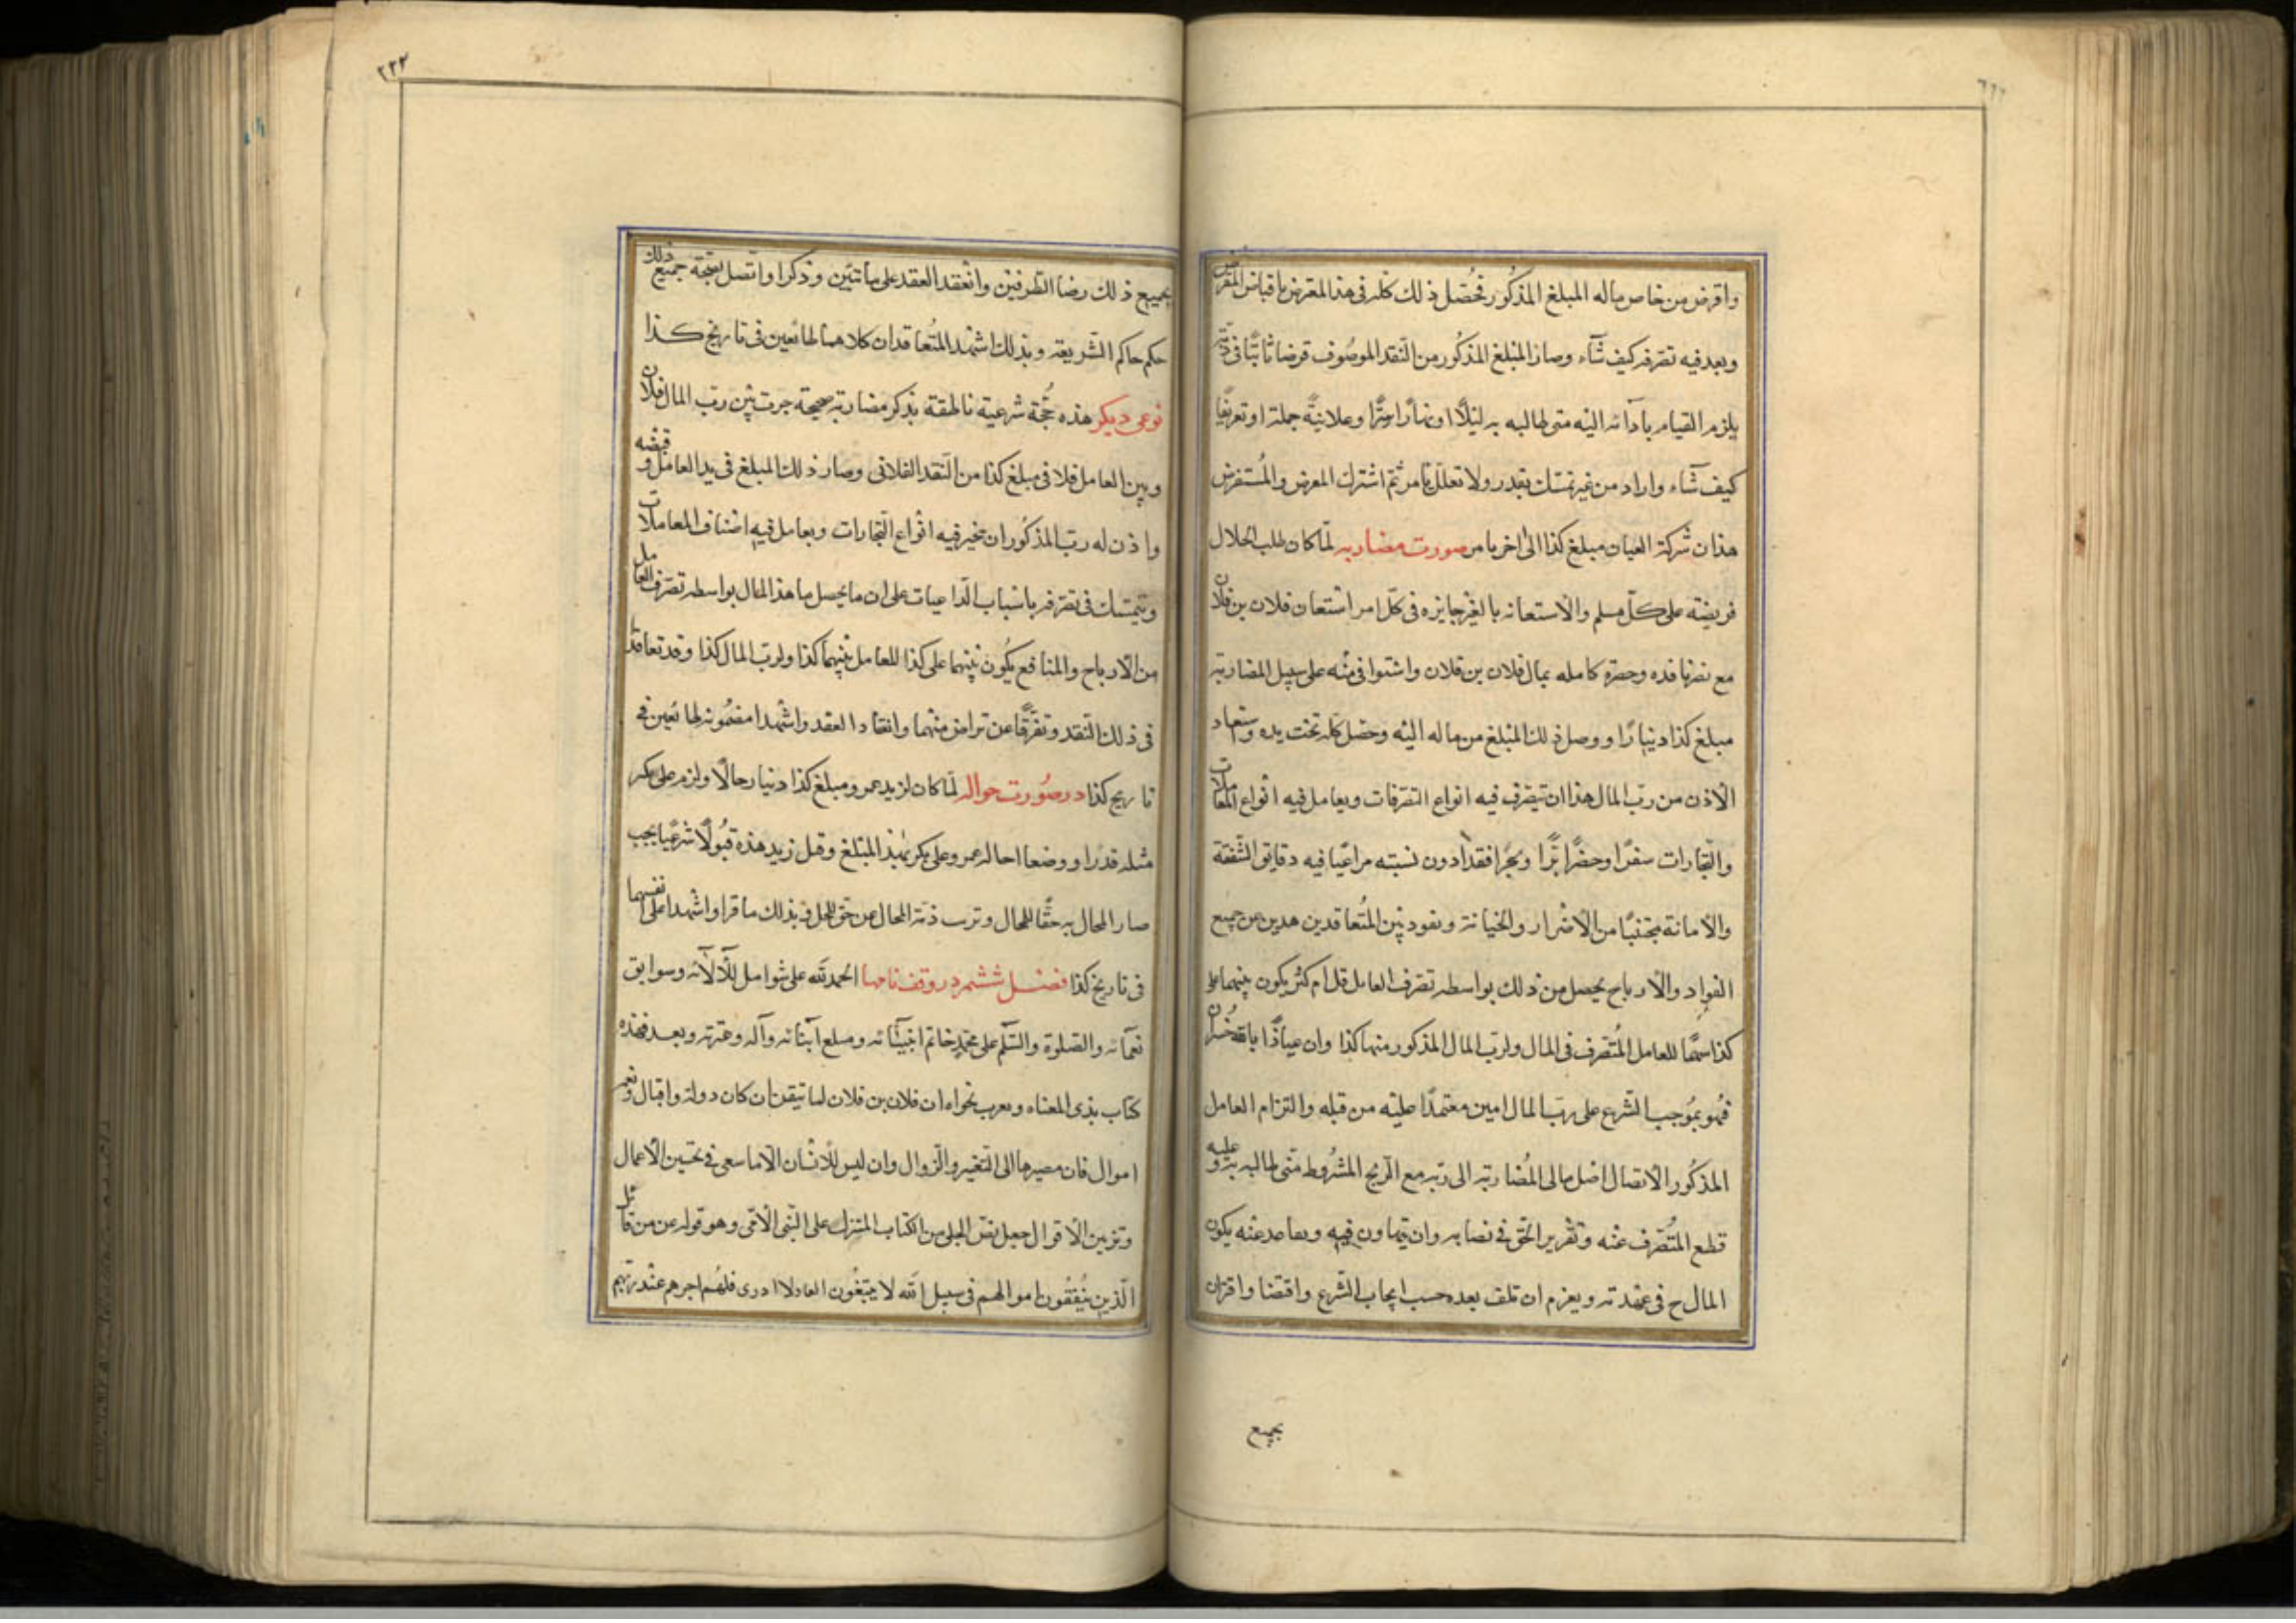 واقرض من خاص ماله المبلغ المذكور فحُصّل ذلك كله فى هذا المقرض باقباض المقرض
وبعد فيه تصّرفه كيف شآء وصار المبلغ المذكور من النّقد الموصُوف قرضا ثابتًا فى ذمّته
يلزم القيام بادآئه اليْه متى طالبه به ليْلًا اونهارًا سرًّا وعلانيةً جملة اوتفريقًا
كيف شآء واراد من غير تمسّك بقدر ولا تعلّل بامر ثمّ اشترك المقرض والمُستقرض
هذان شركة العيان مبلغ كذا الىٰ اخر ما مر صورت مضاربه لّما كان طلب الحلال
فريضة على كلّ مسلم والاستعانه بالغير جايزه فى كلّ امر اسْتعان فلان بن فلان
مع نافذه وحضرة كامله بمال فلان بن فلان على سبيل المضاربة
مبلغ كذا دينارًا ووصل ذلك المبلغ من ماله اليْه وحصل كلّه تحت يده
الاذن من ربّ المال هذا ان تيصّرف فيه انواع التصّرفات ويعامل فيه انواع المعاملات
والتجارات سفرًا وحضرًا برًّا وبحرًا فقدًا دون نسبته مراعيًا فيه دقايق الشّفقة
والامانة مجتنبًا من الاضْرار والخيانة وبين المتُعاقدين هدين عن جميع
الفوايد والارباح يحصل من ذلك بواسطه تصّرف العامل قل ام كثر يكون بينهما على
كذا سهمًا للعامل المُتصّرف فى المال ولربّ المال المذكور منها كذا وان عياذًا بالله خُسران
فهُو بمُوجب الشّرع على ربّ المال امين معتمدًا عليْه من قبله والتزام العامل
المذكُور الاتصال اصْل مال المُضاربة الى ربّه مع الرّبح المشرُوط متى طالبه به وعليه
قطع المُتصّرف عنْه وتقْرير الحق فى نصابه وان يتهاون فيه عنْه يكون
المال ح فى عهدته ويغرم ان تلف بعده حسب ايجاب الشّرع واقتضا واقتران
بجميع
٢٢٣
بجميع ذلك رضا الطّرفيْن وانعقد العقد على ما تبيّن وذكرا واتّصل بصحّة جميع ذلك
حكم حاكم الشّريعة وبذلك اشْهد المتُعاقدان كلاهما طائعين فى تاريخ كذا
نوعى ديكر هذه حُجّة شرعيّة ناطقة بذكر مضاربة صحيحة جرت بيْن ربّ المال فلان
وبين العامل فلا فى مبلغ كذا من النّقد الفلانى وصار ذلك المبلغ فى يد العامل وقبضه
واذن له ربّ المذكُور ان فيه انْواع التّجارات ويعامل فيه اصْناف المعاملات
ويتمسّك فى تصّرفه باسْباب الدّاعيات على ان ما يحصل ما هذا المال بواسطه تصّرف العامل
من الارباح والمنافع يكُون بيْنهما على كذا للعامل بيْنهما كذا ولربّ المال كذا وقد تعاقدا
فى ذلك النقد وتفرّقا عن تراض منْهما وانقاد العقد واشْهدا مضمُونه طائعين فى
تاريخ كذا در صُورت حواله لّما كان لزيد عمرو مبلغ كذا دينار حالًا ولزم على بكر
مثله قدرًا ووضعا احاله عمرو على بكر بهٰذ المبْلغ وقبل زيد هذه قبُولًا شرعيًّا يجب
صار المحال به حقًّا للمحال ذمّة المحال عن حق المحل بذلك ما قرا واشْهدا على انفسهما
فى تاريخ كذا فصْل ششمر در وقف نامها الحمد لله على شوامل للآلائه وسوابق
نعمآئه والصّلوة والسّلم على محمّد خاتم انبيآئه وآله وعترته وبعد فهذه
كتاب بذى المعناه ويعرب نحواه ان فلان بن فلان لما تيقن ان كان دولة واقبال ونعم
اموال فان مصيرها الى التغير والزّوال وان ليس للانْسان الّا ما سعى فى تحسين الاعمال
وتزيين الاقوال جعل نصّ الجلى من الكتاب المنزل على النّبى الامّى وهو قوله عن من قائل
الّذين ينُفقُون اموالهم فى سبيل الله لا يتبعُون فلهُم اجرهم عنْد ربّهم